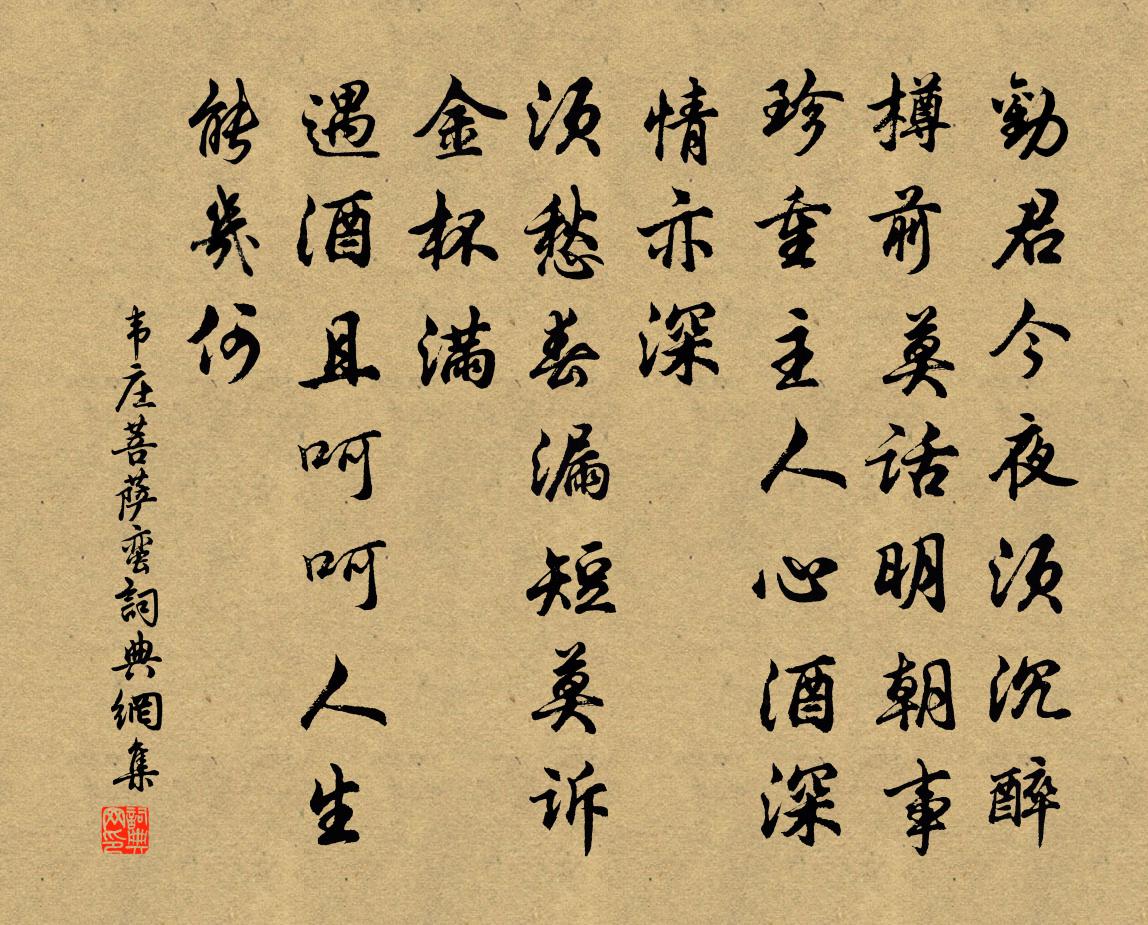 勸君今夜须沉醉
樽前莫话明朝事
珍重主人心酒深
情亦深
须愁春漏短莫诉
金杯满
遇酒且呵呵人生
能幾何
韦庄菩萨蛮詞典網集
詞典网印